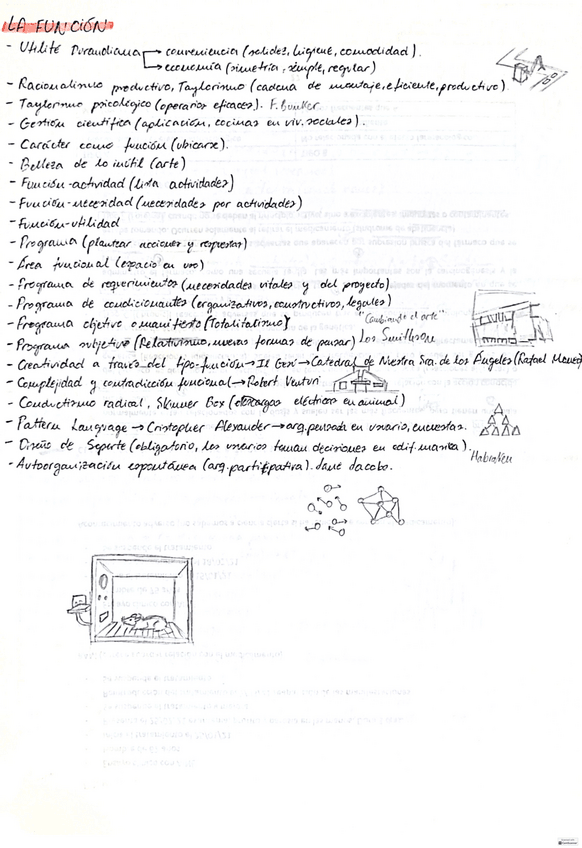 LA FUNCIÓN
- Utilité Durandiana → conveniencia (solidez, higiene, comodidad).
→ economía (simetría, simple, regular)
- Racionalismo productivo, Taylorismo (cadena de montaje, eficiente, productivo).
- Taylorismo psicológico (operarios eficaces). F. Bunker
- Gestión científica (aplicación, cocinas en viv. sociales).
- Carácter como función (ubicarse).
- Belleza de lo inútil (arte)
- Función-actividad (lista actividades)
- Función-necesidad (necesidades por actividades)
- Función-utilidad
- Programa (plantear acciones y respuestas)
- Área funcional (espacio en uso)
- Programa de requerimientos (necesidades vitales y del proyecto)
- Programa de condicionantes (organizativos, constructivos, legales)
- Programa objetivo o manifiesto (Totalitalismo)
"Cambiando el arte"
- Programa subjetivo (Relativismo, nuevas formas de pensar) Los Smithson
- Creatividad a través del tipo-función → Il Gesú → Catedral de Nuestra Sra. de los Ángeles (Rafael Moneo)
- Complejidad y contradicción funcional → Robert Venturi
- Conductismo radical, Skinner Box (descargas eléctricas en animal)
- Pattern Language → Cristopher Alexander → arq. pensada en usuario, encuestas.
- Diseño de Soporte (obligatorio, los usuarios toman decisiones en edif. masiva). Habraken
- Autoorganización espontánea (arq. participativa). Jane Jacobs.